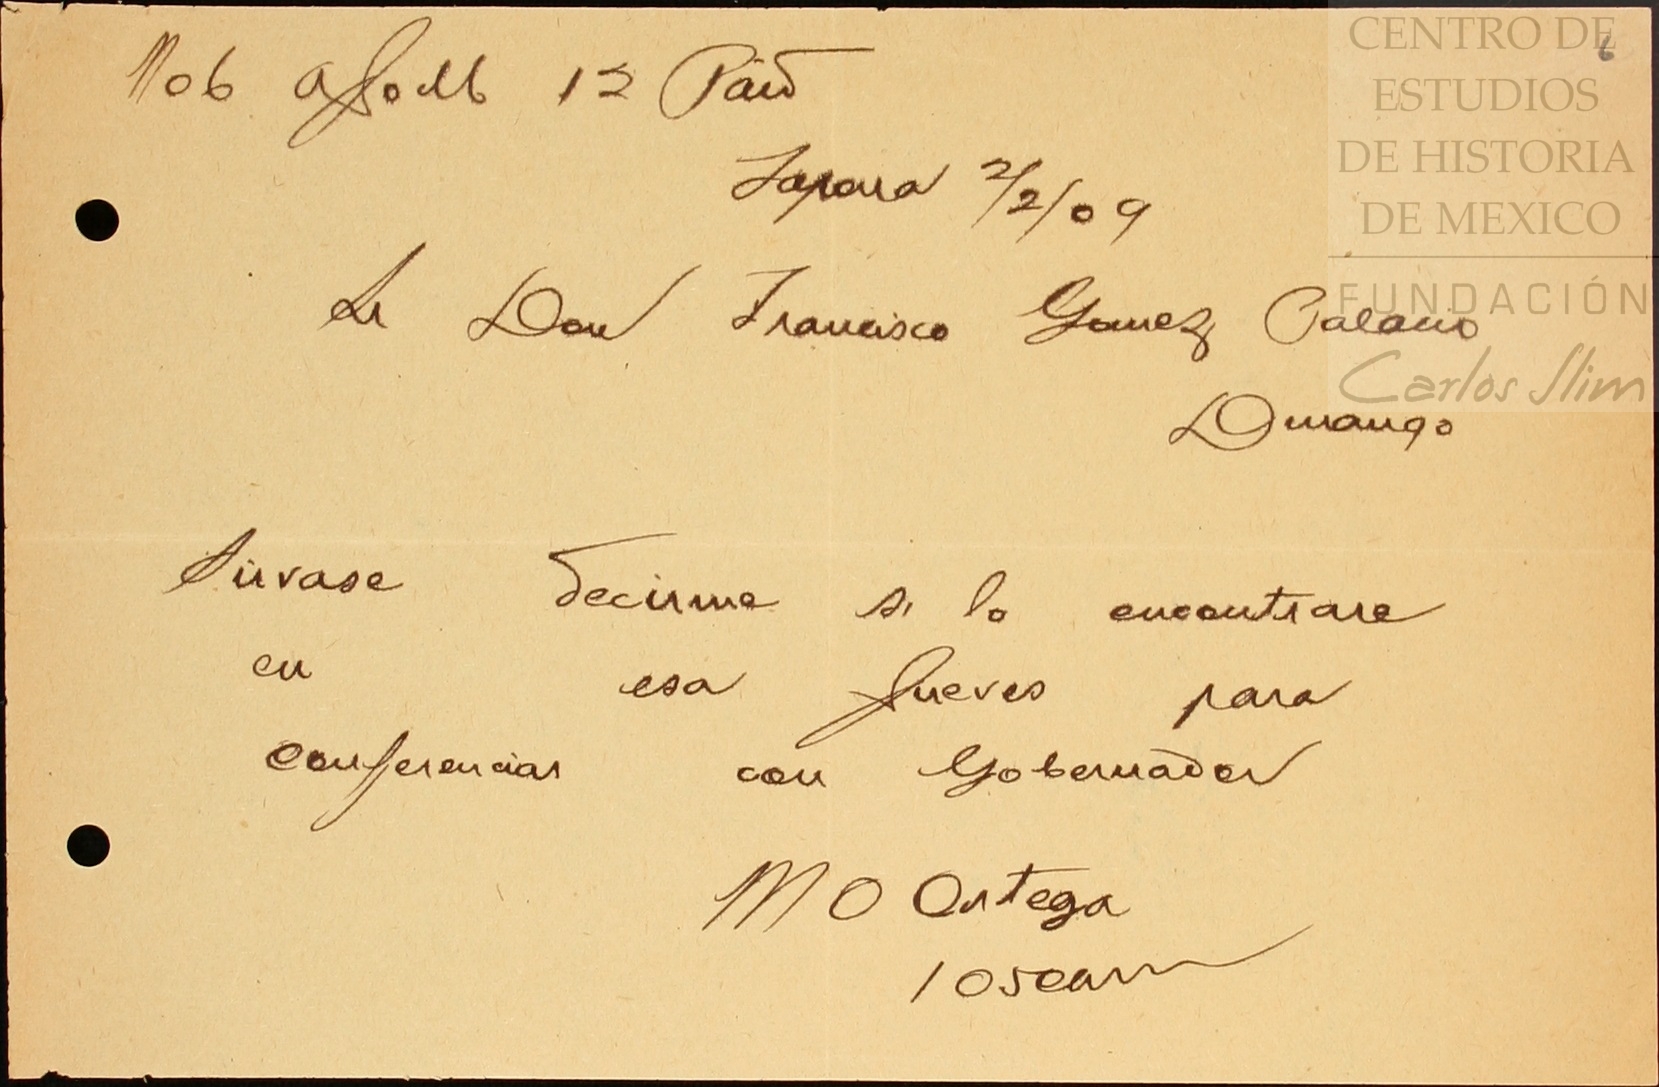 No 6
12 Paid
2/2/09
Sr Don Francisco Gomez Palacio
Durango
Sirvase decirme si lo encontrare
en esa Jueves para
conferenciar con Gobernador
M O Ortega
CENTRO DE
ESTUDIOS
DE HISTORIA
DE MEXICO
FUNDACIÓN
Carlos Slim
6